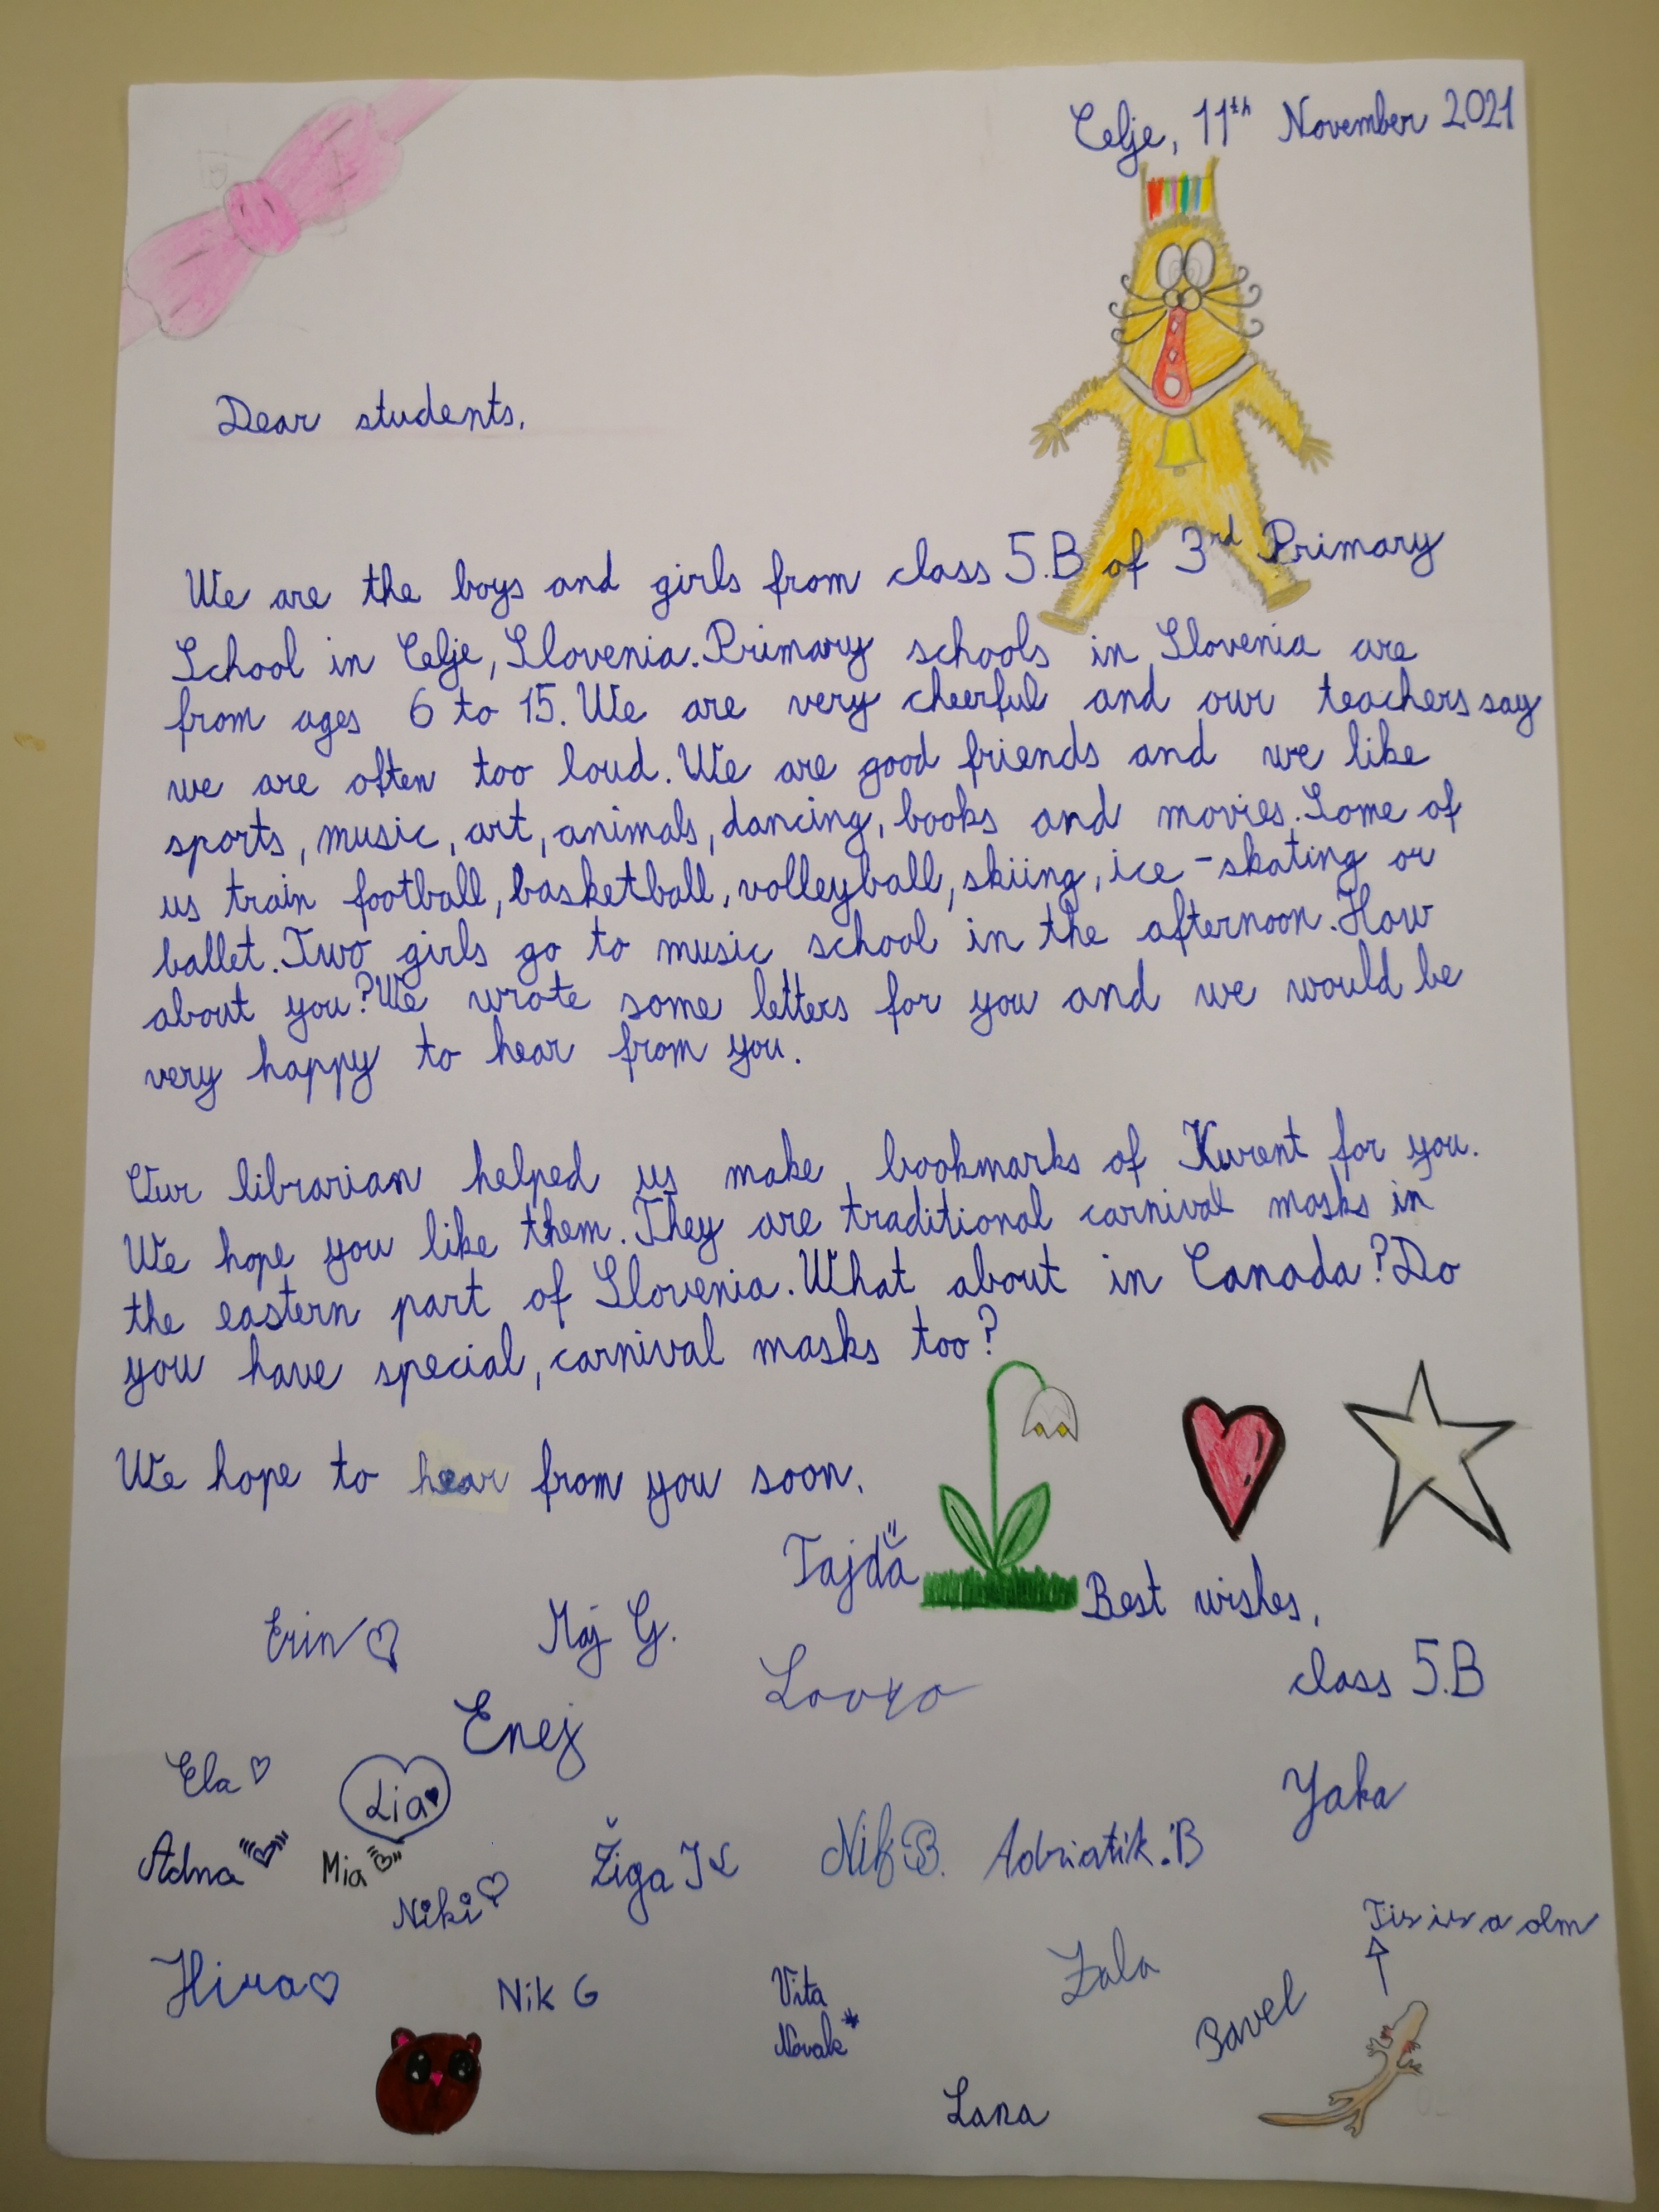 Celje, 11th November 2021
Dear students,
We are the boys and girls from class 5.B of 3rd Primary
School in Celje, Slovenia. Primary schools in Slovenia are
from ages 6 to 15. We are very cheerful and our teachers say
we are often too loud. We are good friends and we like
sports, music, art, animals, dancing, books and movies. Some of
us train football, basketball, volleyball, skiing, ice-skating or
ballet. Two girls go to music school in the afternoon. How
about you? We wrote some letters for you and we would be
very happy to hear from you.
Our librarian helped us make bookmarks of Kurent for you.
We hope you like them. They are traditional carnival masks in
the eastern part of Slovenia. What about in Canada? Do
you have special, carnival masks too?
We hope to hear from you soon.
Tajda
Best wishes,
Erin
Maj G.
class 5.B
Lovro
Enej
Ela
Lia
Yaka
Adna
Mia
Niki
Žiga
Nik B.
Adriatik.B
Tis is a olm
Hira
Nik G
Vita
Novak
Zala
Pavel
Lana